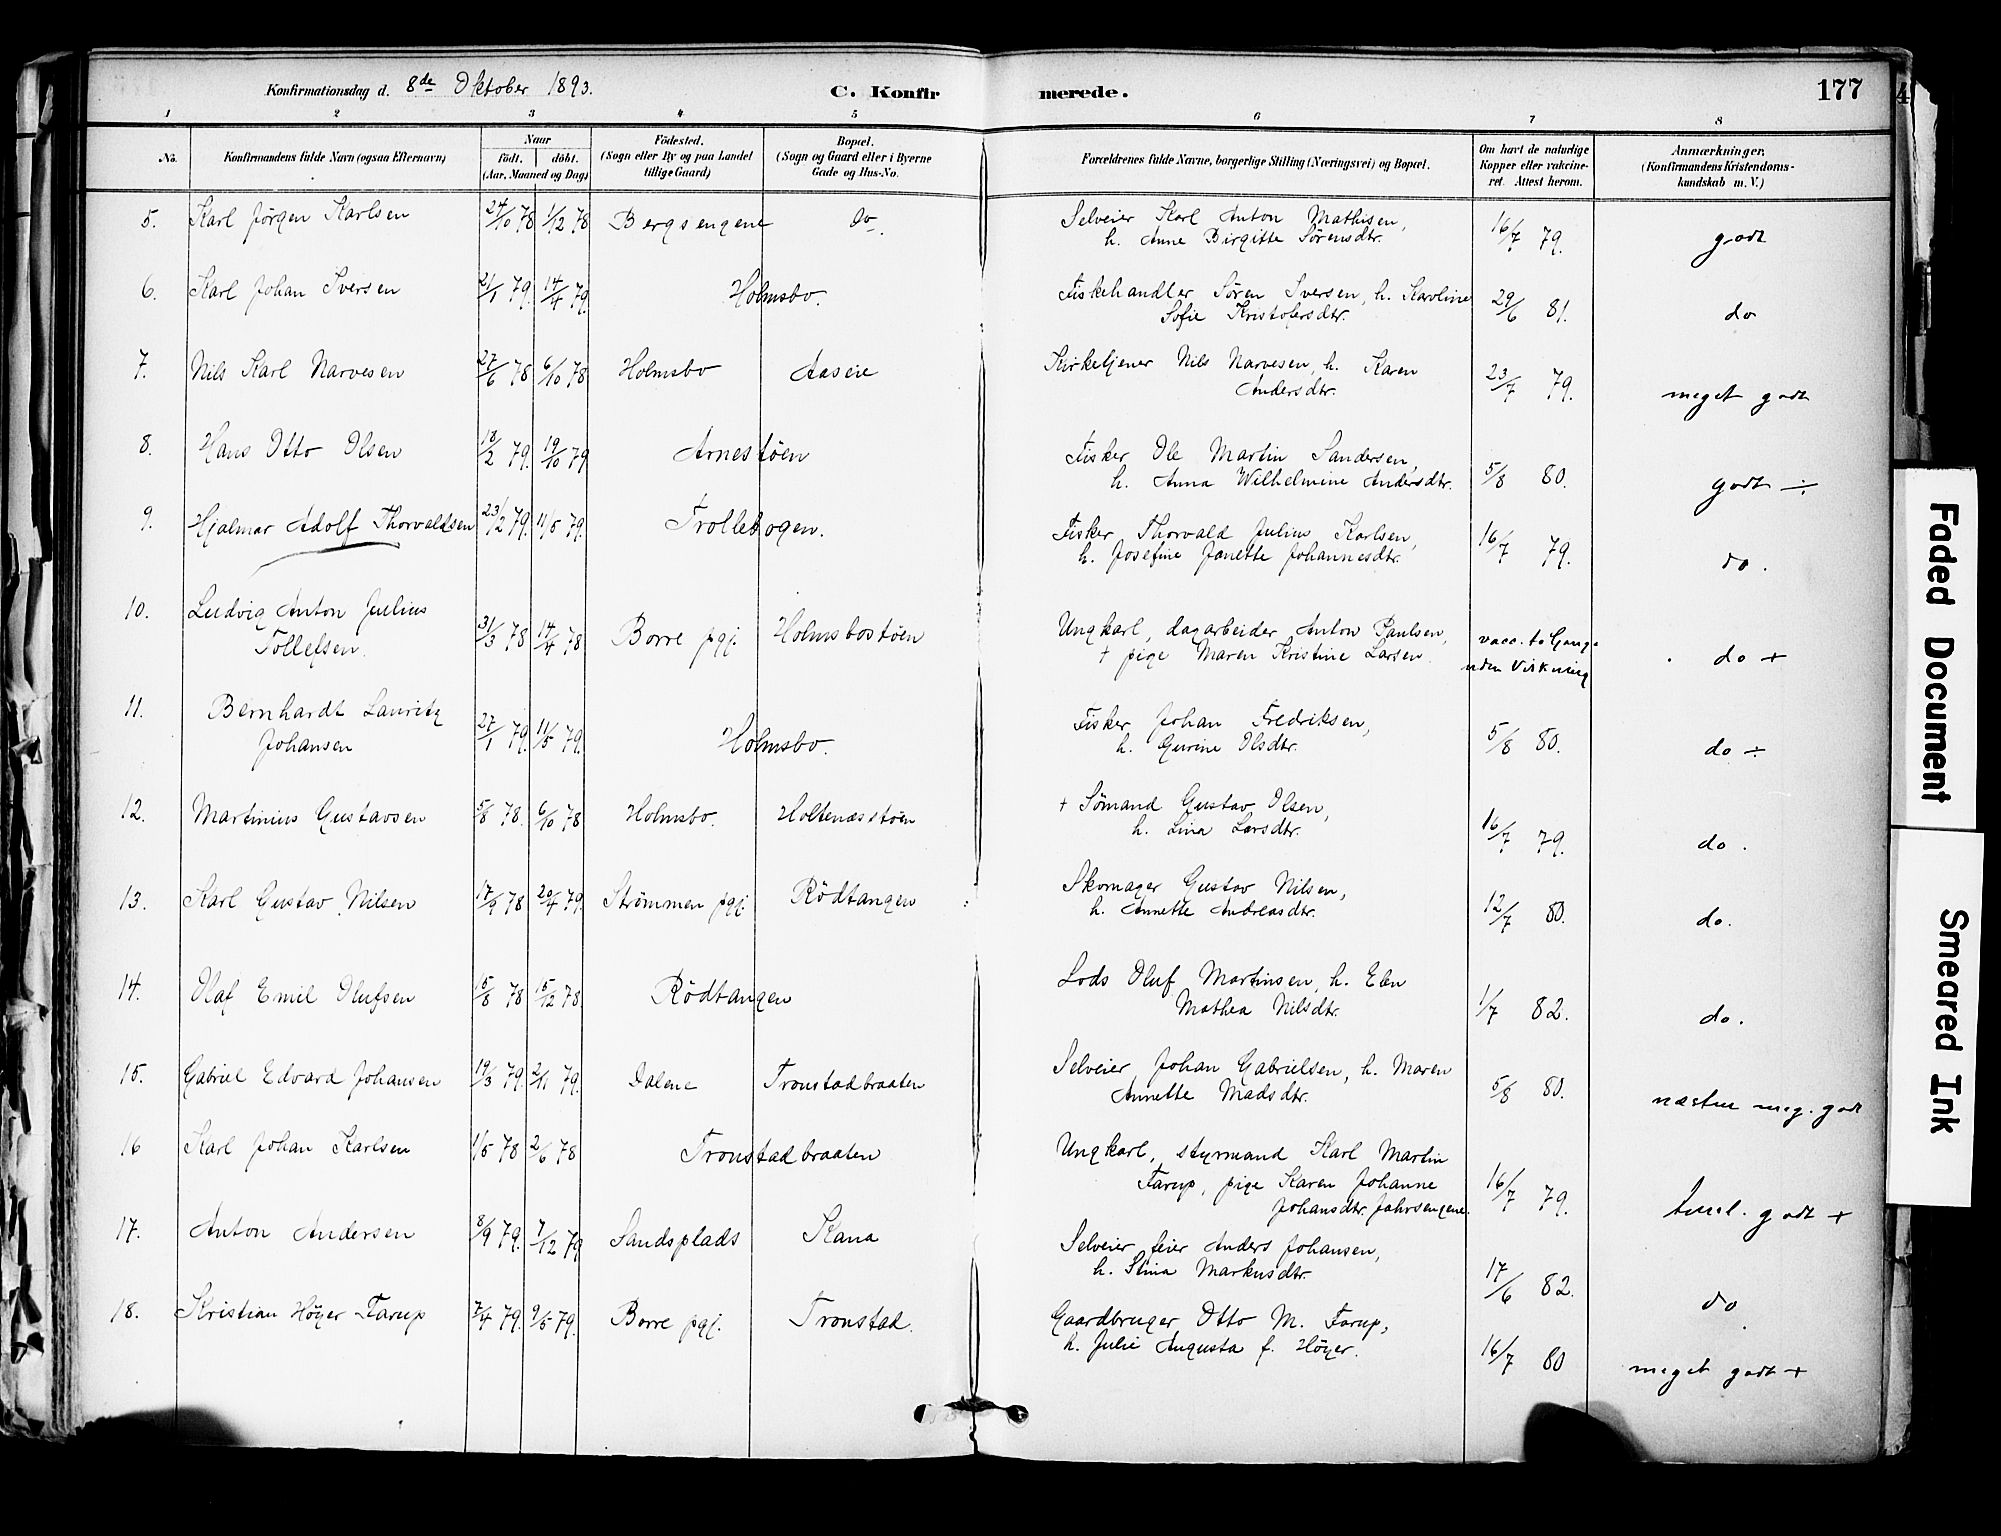 Konfirmationsdag d. 8de Oktober 1893. C. Konfirmerede. 177
1 2 3 4 5 6 7 8
No. Konfirmandens fulde Navn (ogsaa Efternavn) Naar födt. döbt. (Aar, Maaned og Dag) Födested. (Sogn eller By og paa Landet tillige Gaard) Bopæl. (Sogn og Gaard eller i Byerne Gade og Hus-No. Forældrenes fulde Navne, borgerlige Stilling (Næringsvei) og Bopæl. Om havt de naturlige Kopper eller vakcineret. Attest herom. Anmærkninger, (Konfirmandens Kristendomskundskab m. V.)
5. Karl Jørgen Karlsen 24/10 78 1/12 78 Bergsengene do. Selveier Karl Anton Mathisen, 16/7 79. godt
h. Anne Birgitte Sörensdtr.
6. Karl Johan Iversen 21/1 79. 14/4 79. Holmsbo. Fiskehandler Sören Iversen, h. Karoline 29/6 81. do
Sofie Kristofersdtr.
7. Nils Karl Narvesen 27/6 78 6/10 78 Holmsbo Aaseie Kirketjener Nils Narvesen, h. Karen 23/7 79. meget godt
Andersdtr.
8. Hans Otto Olsen 18/2 79. 19/10 79 Arnestöen Fisker Ole Martin Sandersen, 5/8 80. godt ÷
h. Anna Wilhelmine Andersdtr.
9. Hjalmar Adolf Thorvaldsen 23/2 79. 11/5 79. Trollebogen. Fisker Thorvald Julius Karlsen, 16/7 79. do.
h. Josefine Janette Johannesdtr.
10. Ludvig Anton Julius 31/3 78 14/4 78 Borre pgj. Holmsbostöen Ungkarl, dagarbeider Anton Paulsen, vacc. to Gange do +
Tollefsen. + pige Maren Kristine Larsen. uden Virkning
11. Bernhardt Lauritz 27/1 79. 11/5 79. Holmsbo. Fisker Johan Fredriksen, 5/8 80. do ÷
Johansen h. Gurine Olsdtr.
12. Martinius Gustavsen 5/8 78. 6/10 78 Holmsbo. Holtenæsstöen + Sömand Gustav Olsen, 16/7 79. do.
h. Lina Larsdtr.
13. Karl Gustav Nilsen 17/9 78 20/4 79. Strömmen pgj. Rödtangen Skomager Gustav Nilsen, 12/7 80. do.
h. Annette Andreasdtr.
14. Olaf Emil Olufsen 15/8 78 15/12 78 Rödtangen Lods Oluf Martinsen, h. Elen 1/7 82. do.
Mathea Nilsdtr.
15. Gabriel Edvard Johansen 19/3 79. 2/11 79. Dalene Tronstadbraaten Selveier Johan Gabrielsen, h. Maren 5/8 80. næsten meg. godt
Annette Madsdtr.
16 Karl Johan Karlsen 1/5 78 2/6 78 Tronstadbraaten Ungkarl, styrmand Karl Martin 16/7 79. temel. godt +
Tarup, pige Karen Johanne
Johansdtr. Jahrsengene.
17. Anton Andersen 8/9 79. 7/12 79 Sandsplads Kana Selveier feier Anders Johansen, 17/6 82. do
h. Stina Markusdtr.
18. Kristian Höyer Tarup 7/4 79. 9/5 79. Borre pgj. Tronstad. Gaardbruger Otto M. Tarup, 16/7 80 meget godt +
h. Julie Augusta f. Höyer.
Faded Document
Smeared Ink